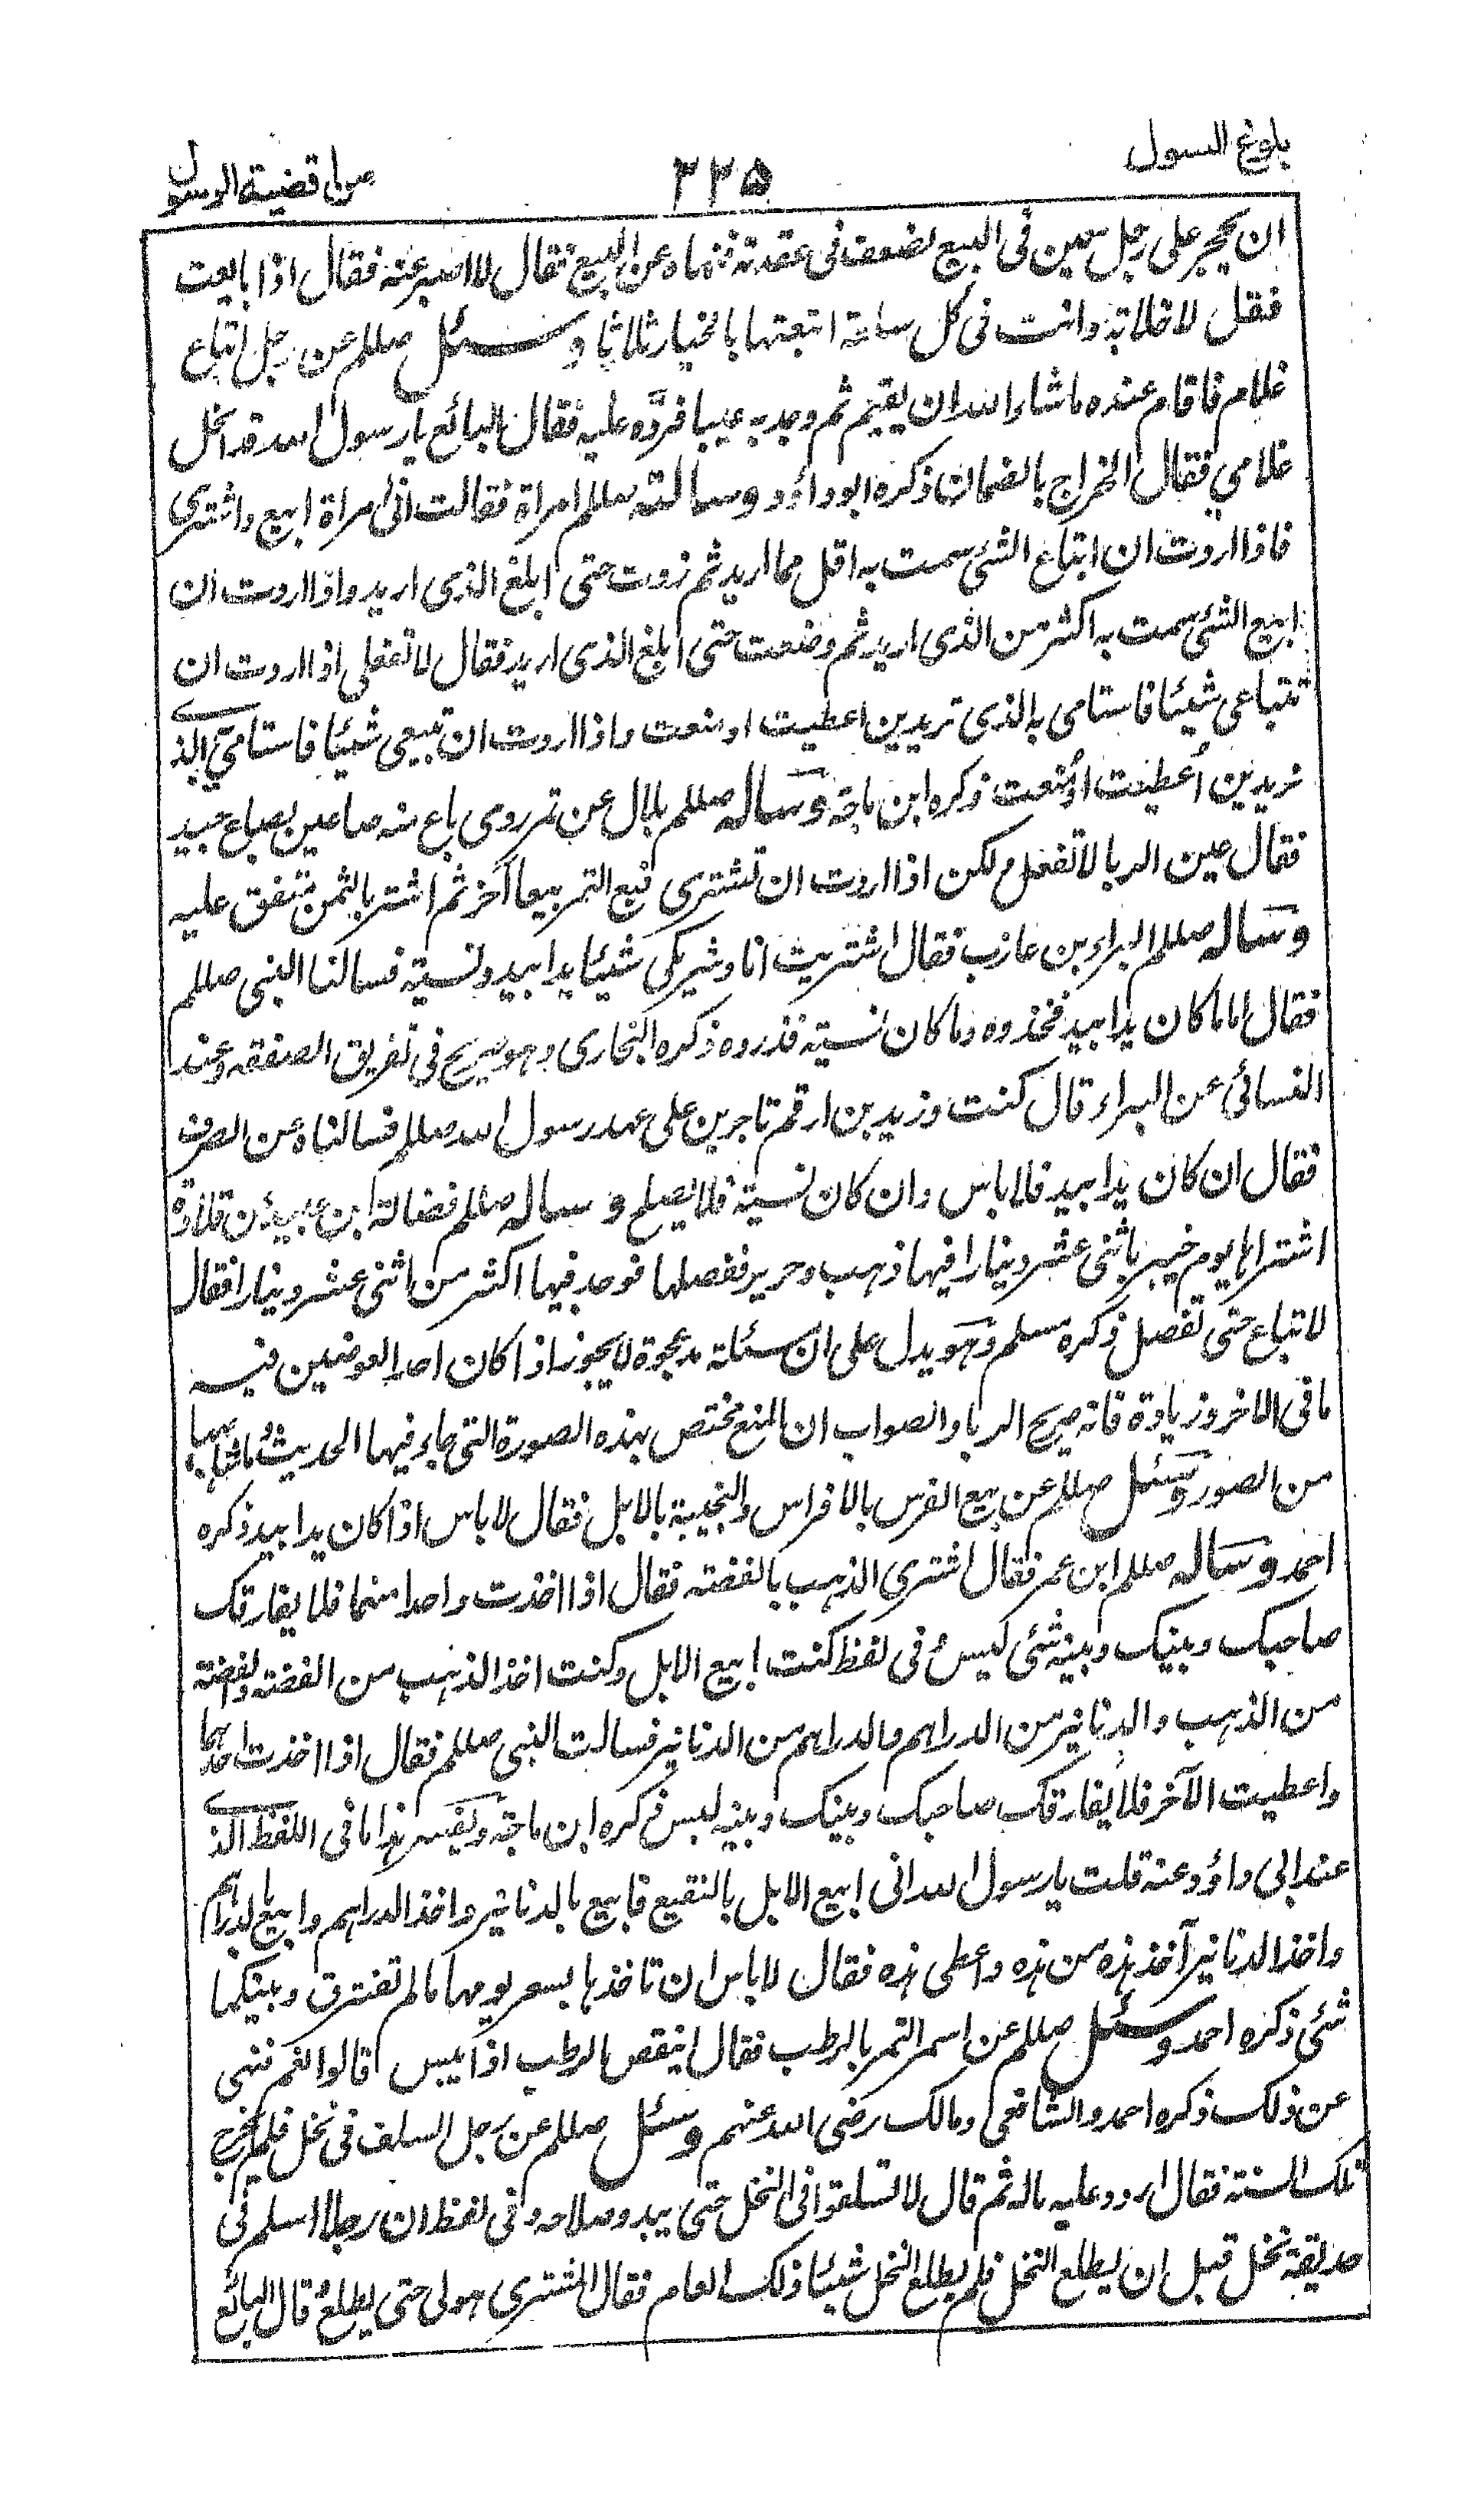 بلوغ السول
٣٢٥
من اقضية الرسول
ان يحجر على رجل سمين فى البيع لضعف فى عقدته فنهاه عن البيع فقال لا اصبر عنه فقال اذا بايعت
فقل لا خلابة وانت فى كل سلعة ابتعتها بالخيار ثلاثا وسئل صللم عن رجل ابتاع
غلام فاقام عنده ماشاء الله ان يقيم ثم وجد به عيبا فرده عليه فقال البائع يا رسول الله قد اغل
غلامي فقال الخراج بالضمان ذكره ابو داؤد وسالته صللم امراة فقالت انى امراة ابيع واشترى
فاذا اردت ان ابتاع الشئ سمت به اقل مما اريد ثم زدت حتى ابلغ الذى اريد واذا اردت ان
ابيع الشئ سمت به اكثر من الذى اريد ثم وضعت حتى ابلغ الذى اريد فقال لا تفعلى اذا اردت ان
تبتاعى شيئا فاستامى به الذى تريدين اعطيت او منعت واذا اردت ان تبيعى شيئا فاستامى به الذى
تريدين أعطيت اومنعت ذكره ابن ماجة وساله صللم بلال عن تمر ردى باع منه صاعين بصاع جيد
فقال عين الربا لا تفعل ولكن اذا اردت ان تشترى فبع التمر بيعا آخر ثم اشتر بالثمن متفق عليه
وساله صللم البراء بن عازب فقال اشتريت انا وشريكى شيئا يدا بيد ونسيئة فسالنا النبى صللم
فقال اما ما كان يدا بيد فخذوه وما كان نسيئة فذروه ذكره البخارى وهو صريح فى تفريق الصفقه وعند
النسائى عن البراء قال كنت وزيد بن ارقم تاجرين على عهد رسول الله صللم فسالناه عن الصرف
فقال ان كان يدا بيد فلا باس وان كان نسيئة فلا يصلح وساله صللم فضالة ابن عبيد عن قلادة
اشتراها يوم خيبر باثنى عشر دينارا فيها ذهب وحرير ففصلها فوجد فيها اكثر من اثنى عشر دينارا فقال
لا تباع حتى تفصل ذكره مسلم وهو يدل على ان مسئلة مد عجوة لا يجوز اذا كان احد العوضين فيه
ما فى الاخر وزيادة فانه صريح الربا والصواب ان المنع مختص بهذه الصورة التى جاء فيها الحديث وما شابهها
من الصور وسئل صللم عن بيع الفرس بالافراس والنجيبة بالابل فقال لا باس اذا كان يدا بيد ذكره
احمد وساله صللم ابن عمر فقال اشترى الذهب بالفضة فقال اذا اخذت واحدا منهما فلا يفارقك
صاحبك وبينك وبينه شئ لبس وفى لفظ كنت ابيع الابل وكنت اخذ الذهب من الفضة والفضة
من الذهب والدنانير من الدراهم والدراهم من الدنانير فسالت النبى صللم فقال اذا اخذت احدهما
واعطيت الآخر فلا يفارقك صاحبك وبينك وبينه لبس ذكره ابن ماجة وتفسير هذا ما فى اللفظ الذى
عند ابى داؤد عنه قلت يا رسول الله انى ابيع الابل بالنقيع فابيع بالدنانير واخذ الدراهم وابيع بالدراهم
واخذ الدنانير آخذ هذه من هذه واعطى هذه فقال لا باس ان تاخذها بسعر يومها ما لم تفترق وبينكما
شئ ذكره احمد وسئل صللم عن اسمر التمر بالرطب فقال اينقص الرطب اذا يبس قالوا نعم فنهى
عن ذلك ذكره احمد والشافعى ومالك رضى الله عنهم وسئل صللم عن رجل السلف فى نخل فلم يخرج
تلك السنة فقال اردد عليه ماله ثم قال لا تسلفوا فى النخل حتى يبدو صلاحه وفى لفظ ان رجلا اسلم فى
حديقة نخل قبل ان يطلع النخل فلم يطلع النخل شيئا ذلك العام فقال المشترى هو لى حتى يطلع وقال البائع